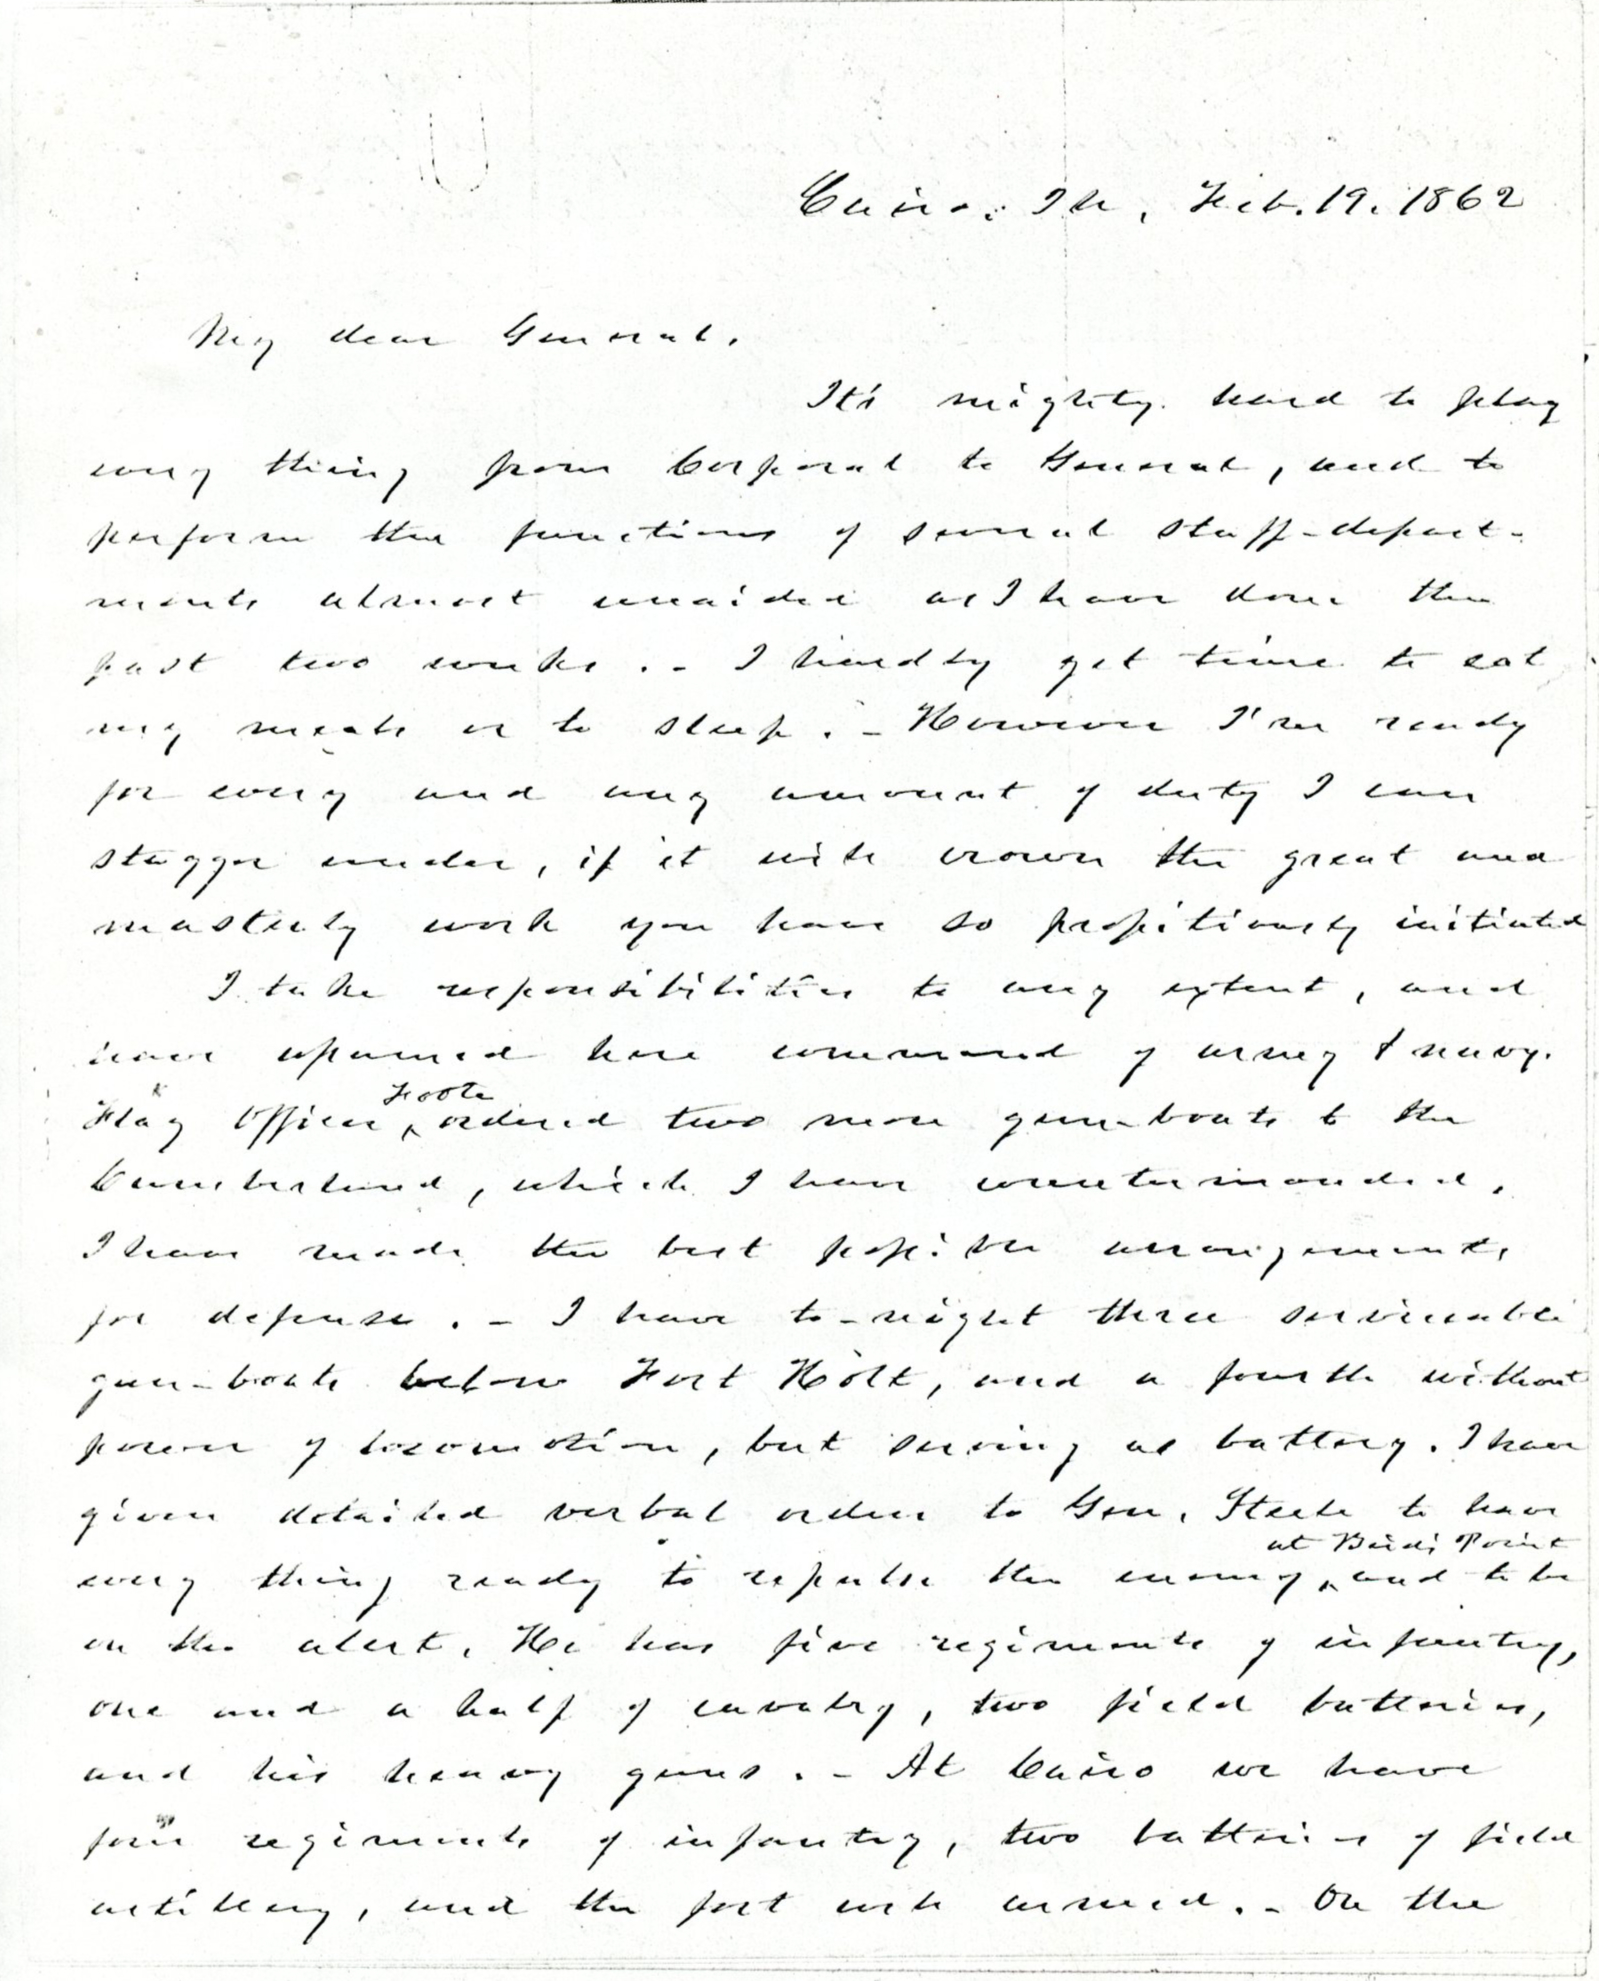 Cairo, Ill, Feb. 19. 1862
My dear General,
It's mighty hard to play
every thing from Corporal to General, and to
perform the functions of several staff-depart-
ments almost unaided as I have done the
past two weeks. - I hardly get time to eat
my meals or to sleep. - However I'm ready
for every and any amount of duty I can
stagger under, if it will crown the great and
masterly work you have so propitiously initiated
I take responsibilities to any extent, and
have assumed here command of army & navy.
Flag Officer Foote ordered two more gun-boats to the
Cumberland, which I have countermanded,
I have made the best possible arrangements
for defense. - I have to-night three serviceable
gun-boats below Fort Holt, and a fourth without
power of locomotion, but serving as battery. I have
given detailed verbal orders to Gen. Steele to have
every thing ready to repulse the enemy at Birds Point and to be
on the alert. He has five regiments of infantry,
one and a half of cavalry, two field batteries,
and his heavy guns. - At Cairo we have
four regiments of infantry, two batteries of field
artillery, and the fort well armed. - On the